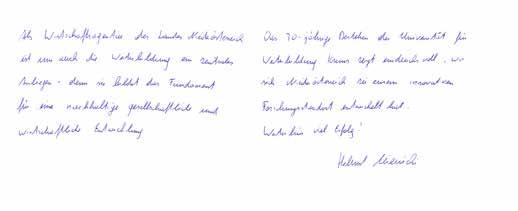 Als Wirtschaftsagentur des Landes Niederösterreich
ist uns auch die Weiterbildung ein zentrales
Anliegen - denn sie bildet das Fundament
für eine nachhaltige gesellschaftliche und
wirtschaftliche Entwicklung
Das 20-jährige Bestehen der Universität für
Weiterbildung Krems zeigt eindrucksvoll, wie
sich Niederösterreich zu einem innovativen
Forschungsstandort entwickelt hat.
Weiterhin viel Erfolg!
Helmut